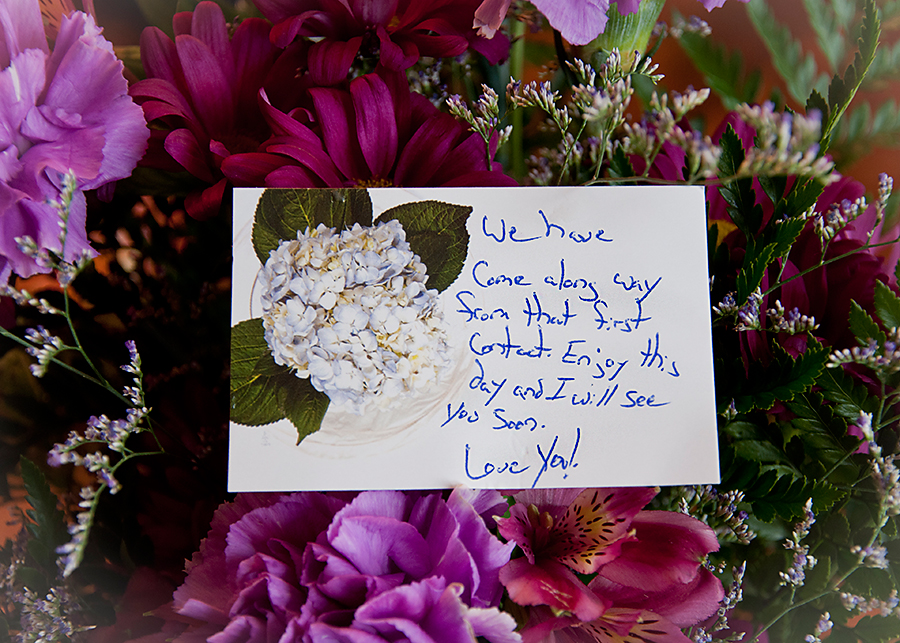 We have
Come along way
from that first
Contact. Enjoy this
day and I will see
you soon.
Love You!